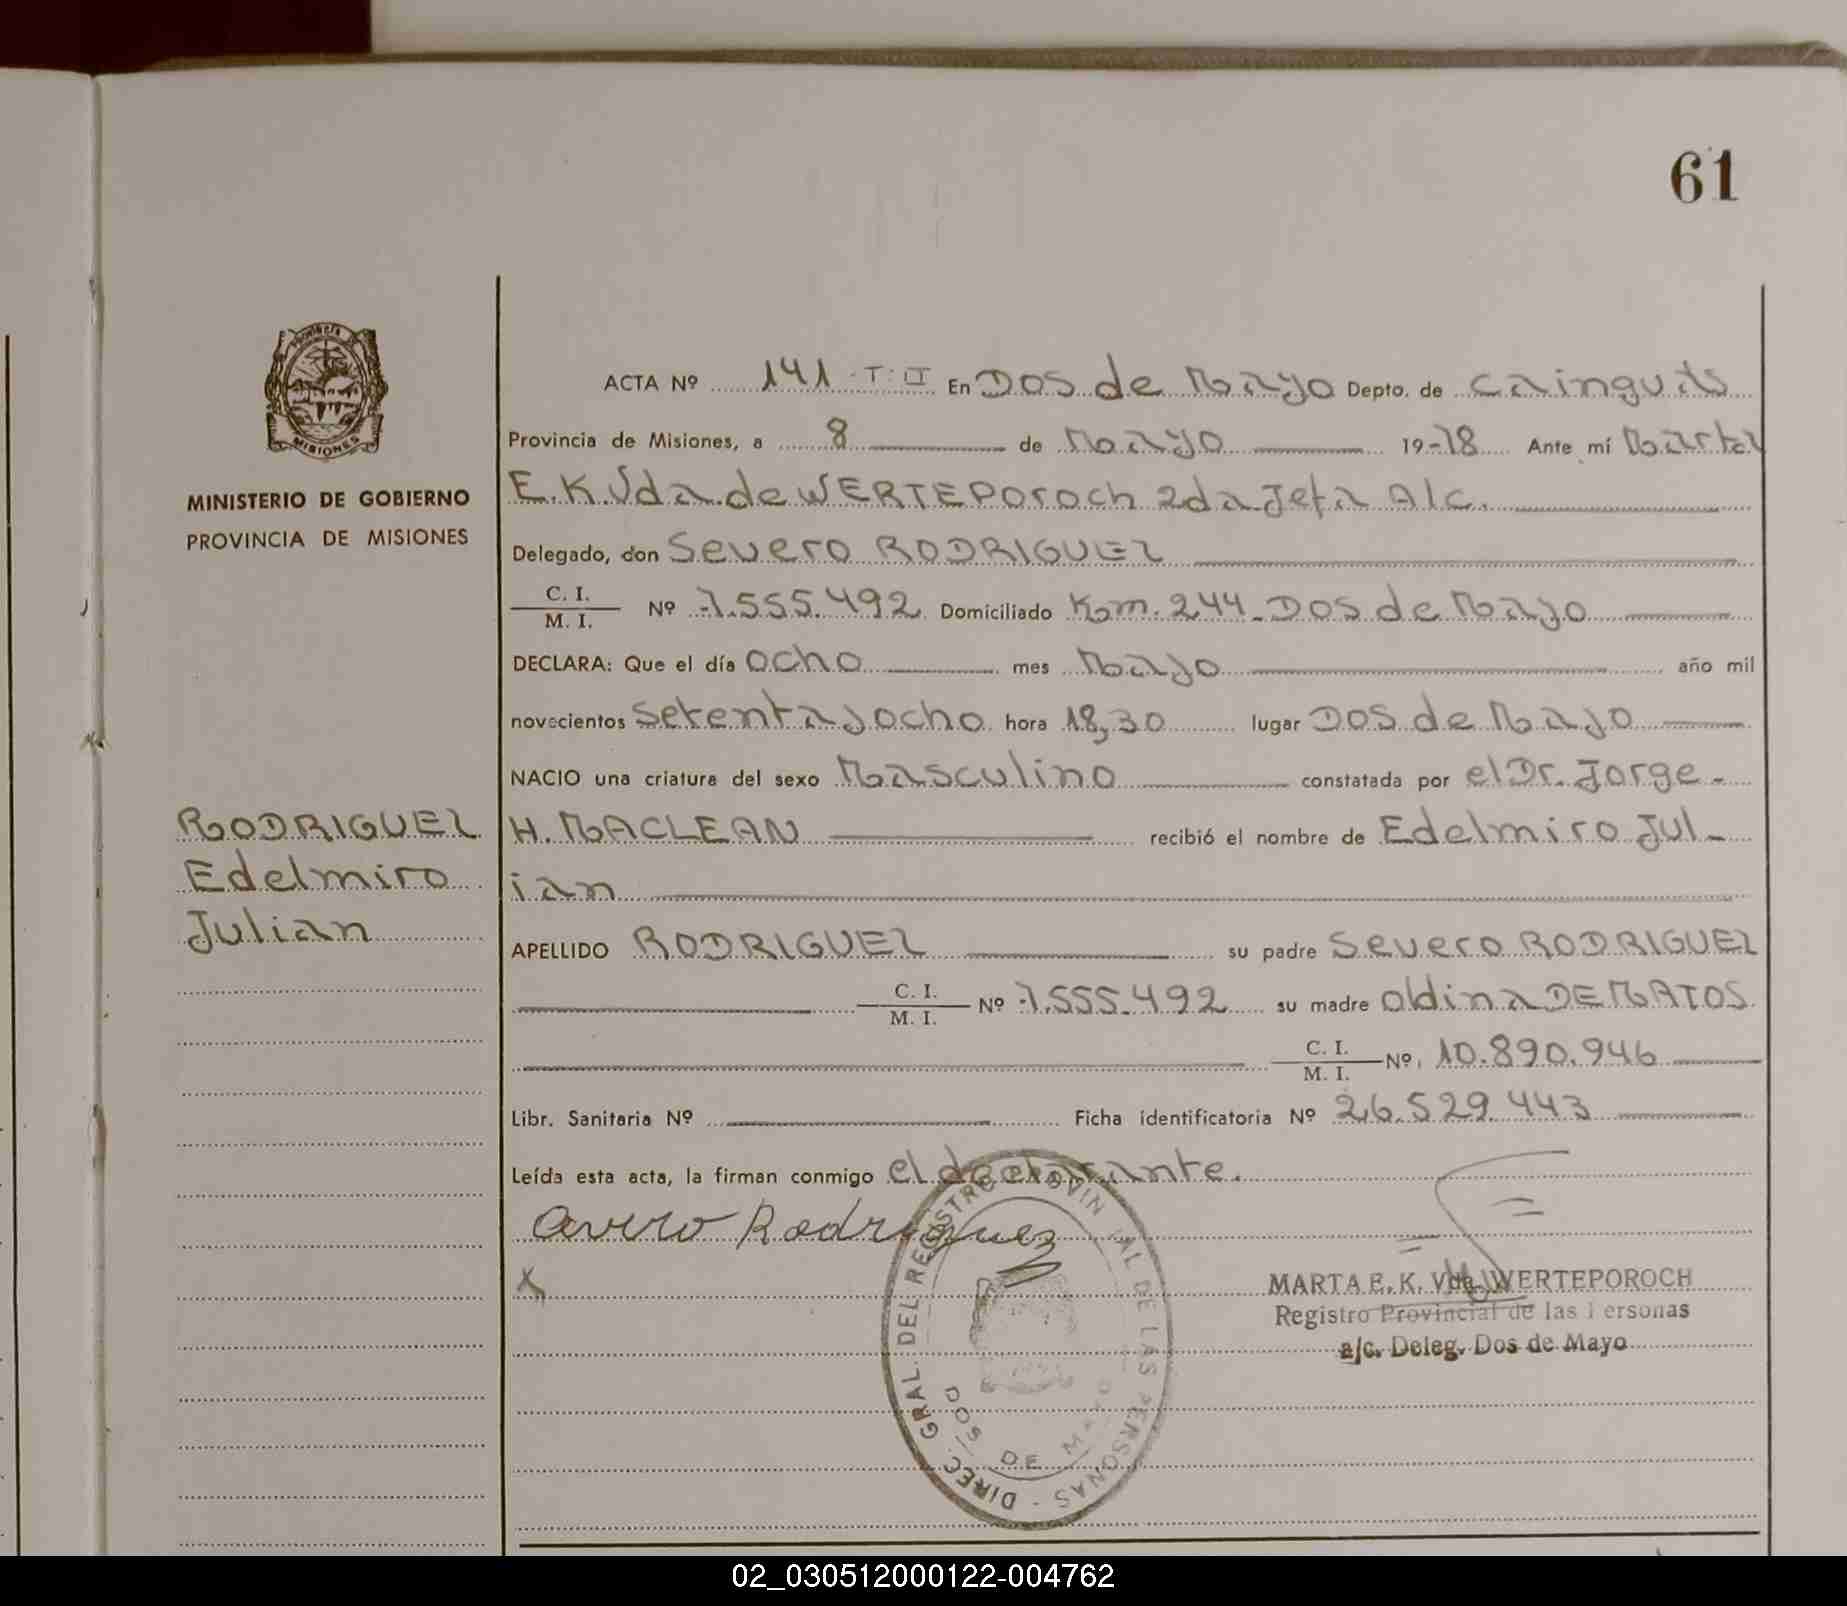 61
ACTA Nº 141 - T: II En Dos de Mayo Depto. de Cainguás
Provincia de Misiones, a 8 de Mayo 19-78 Ante mí Marta
E. K Vda de WERTEPOROCH 2da Jefa A/c.
Delegado, don Severo RODRIGUEZ
C. I.
M. I. Nº 7.555.492 Domiciliado Km. 244 - Dos de Mayo
DECLARA: Que el día ocho mes Mayo año mil
novecientos setenta y ocho hora 18,30 lugar Dos de Mayo
NACIO una criatura del sexo Masculino constatada por el Dr. Jorge -
H. MACLEAN recibió el nombre de Edelmiro Jul-
ian
APELLIDO RODRIGUEZ su padre Severo RODRIGUEZ
C. I.
M. I. Nº 7.555.492 su madre Oldina DE MATOS
C. I.
M. I. Nº 10.890.946
Libr. Sanitaria Nº Ficha identificatoria Nº 26.529.443
Leída esta acta, la firman conmigo el declarante.
Rodriguez
MARTA E. K. Vda. WERTEPOROCH
Registro Provincial de las Personas
a/c. Deleg. Dos de Mayo
DIREC. GRAL. DEL REGISTRO PROVINCIAL DE LAS PERSONAS -
DOS DE MAYO
PROVINCIA DE
MISIONES
MINISTERIO DE GOBIERNO
PROVINCIA DE MISIONES
RODRIGUEZ
Edelmiro
Julian
02_030512000122-004762